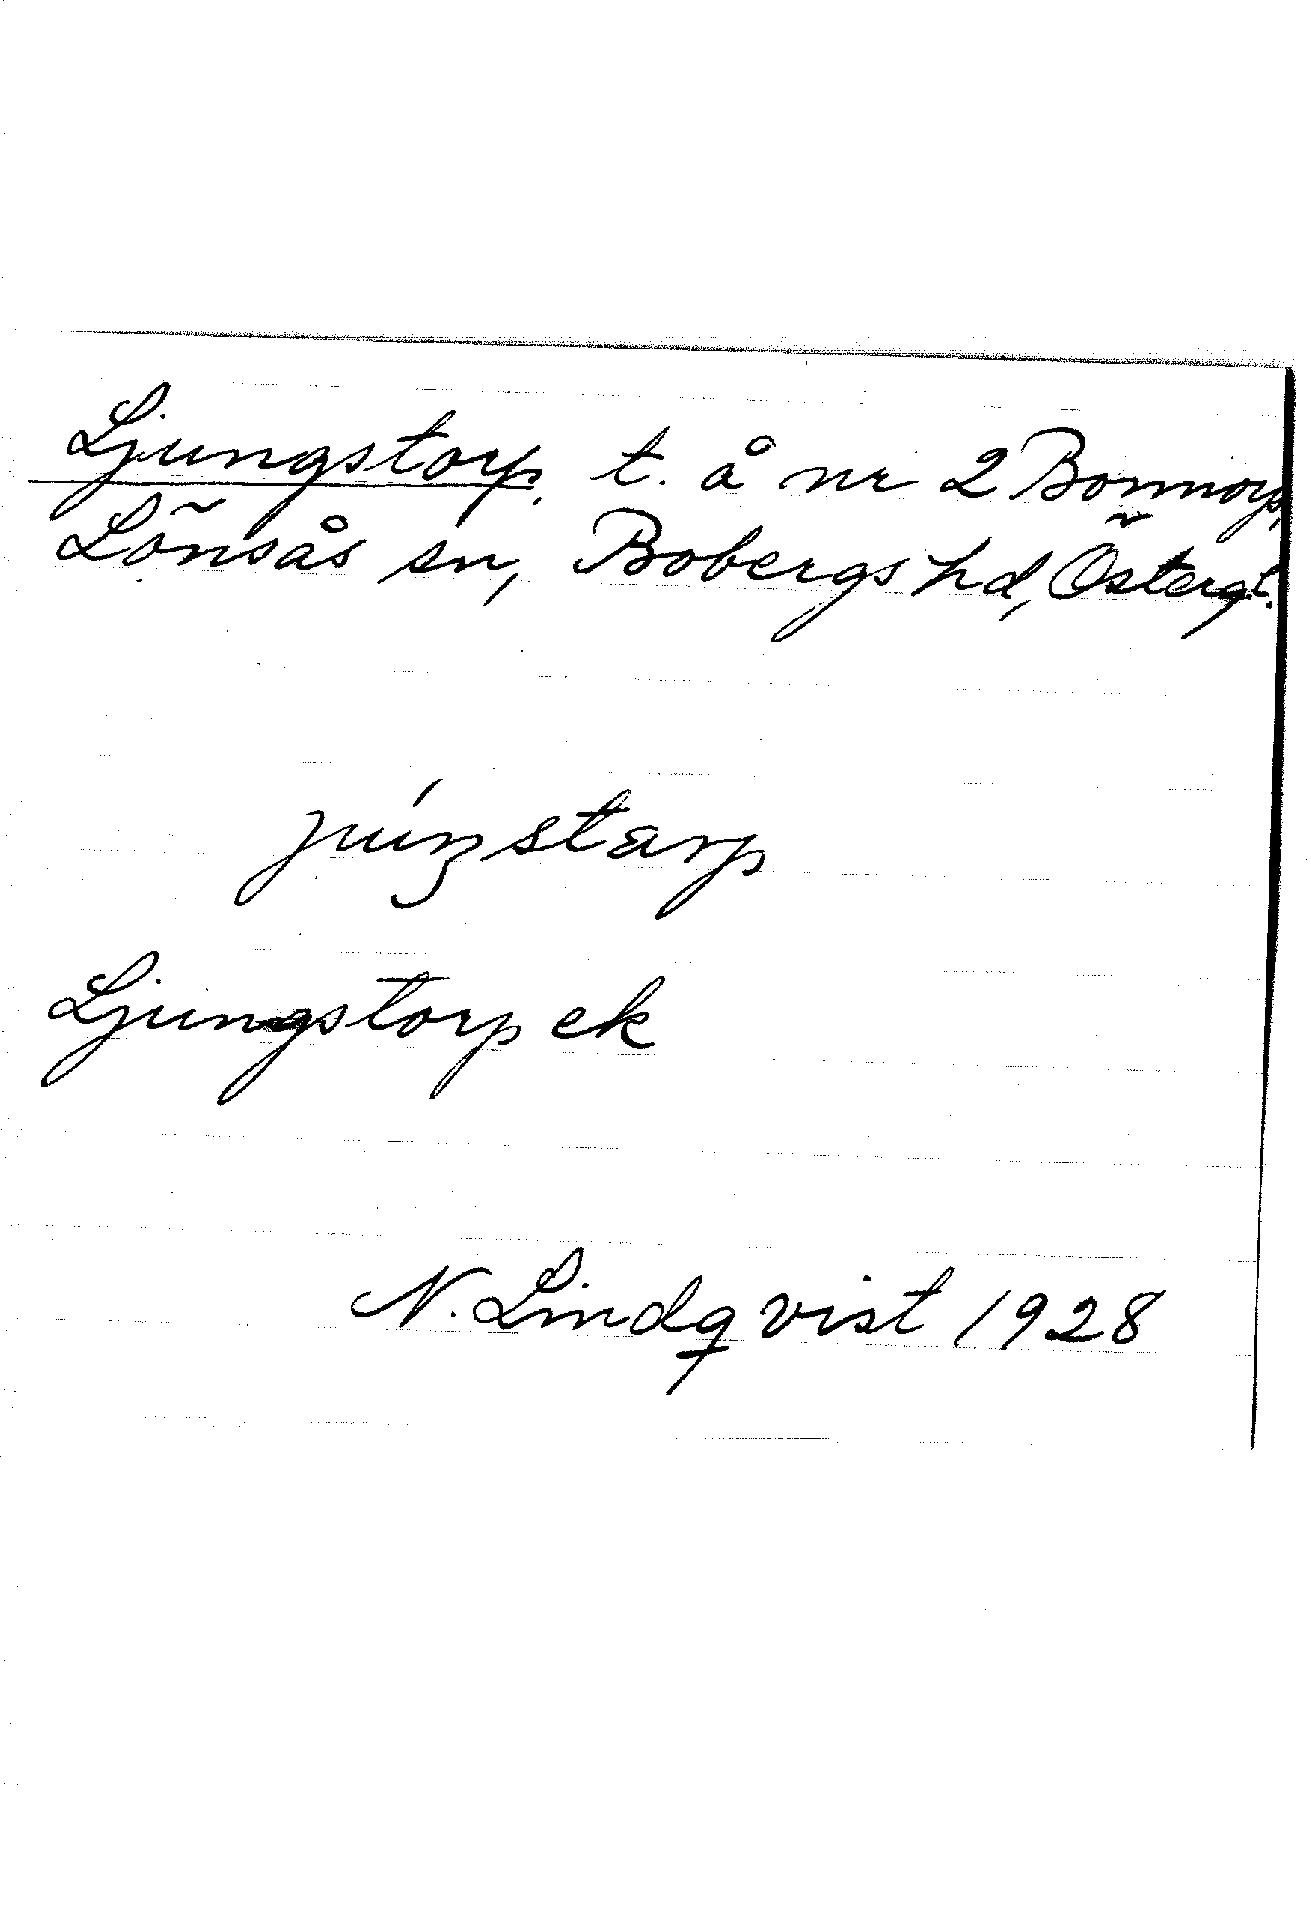 Ljungstorp, t. å nr 2 Bonnorp,
Lönsås sn, Bobergs hd, Östergt.
júŋstarp
Ljungstorp ek
N. Lindqvist 1928